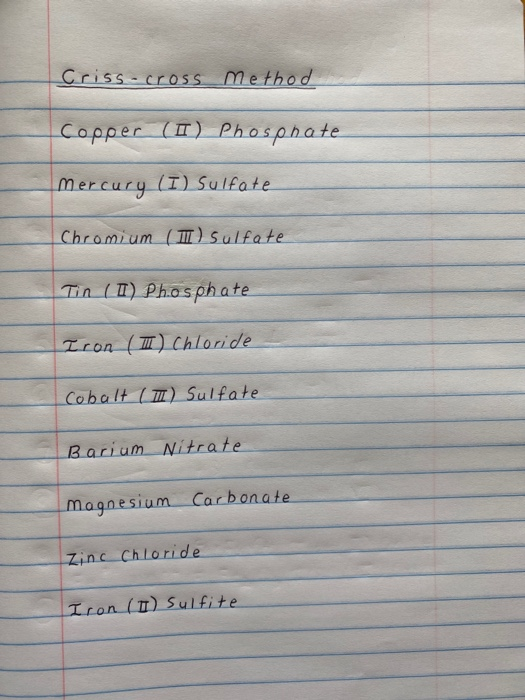 Criss-cross Method
Copper (II) Phosphate
Mercury (I) Sulfate
Chromium (III) Sulfate
Tin (II) Phosphate
Iron (III) Chloride
Cobalt (III) Sulfate
Barium Nitrate
Magnesium Carbonate
Zinc Chloride
Iron (II) Sulfite